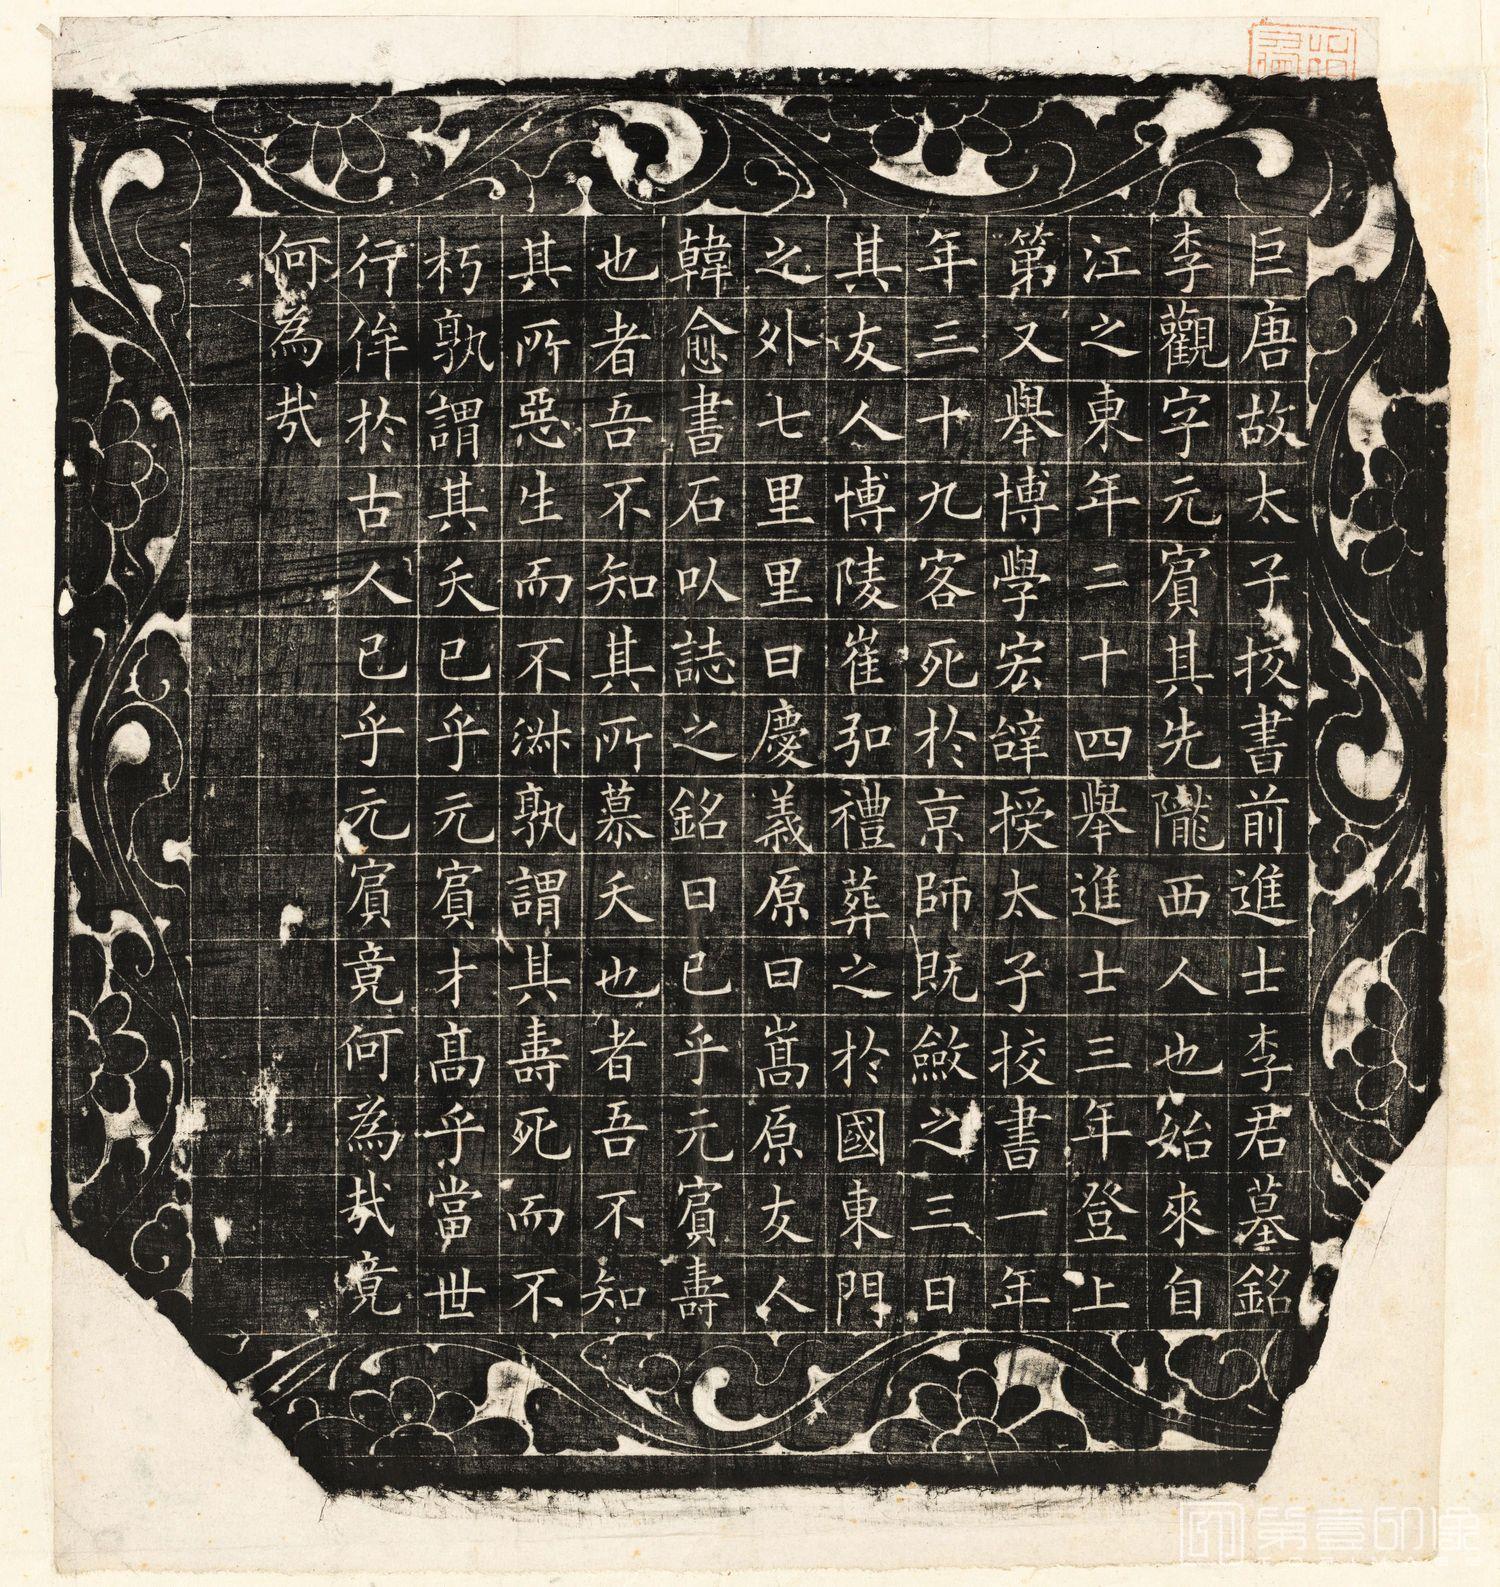 巨唐故太子挍書前進士李君墓銘
李觀字元賔其先隴西人也始來自
江之東年二十四舉進士三年登上
第又舉博學宏辝授太子挍書一年
年三十九客死於亰師既斂之三日
其友人博陵崔弘禮葬之於國東門
之外七里里曰慶義原曰嵩原友人
韓愈書石以誌之銘曰已乎元賔壽
也者吾不知其所慕夭也者吾不知
其所惡生而不淑孰謂其壽死而不
朽孰謂其夭已乎元賔才髙乎當世
行侔於古人已乎元賔竟何為㢤竟
何為㢤
第壹印像